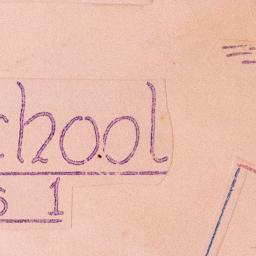 chool
s 1